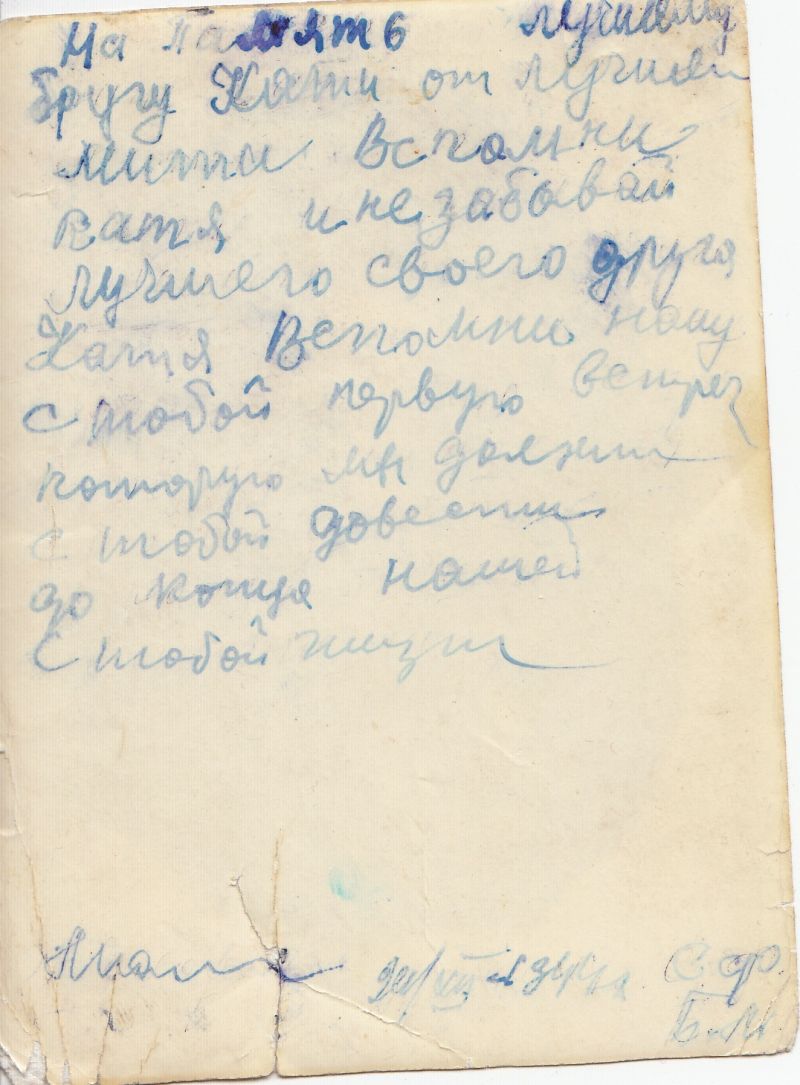 На Память лучшему
другу Кати от лучшей
мити Вспомни
катя и незабывай
лучшего своего друга
Катя Вспомни нашу
с тобой первую встреч
которую мы должни
с тобой довести
до конца нашей
с тобой жизни
С Ф
Б. М.